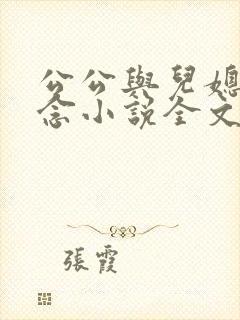 公公與兒媳
念小說全文
張霞